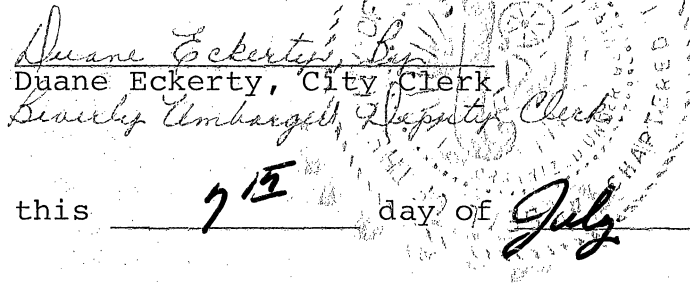 Duane Eckerty, By
Duane Eckerty, City Clerk
Beverly Umbarger, Deputy Clerk
this 7th day of July
CHARTERED